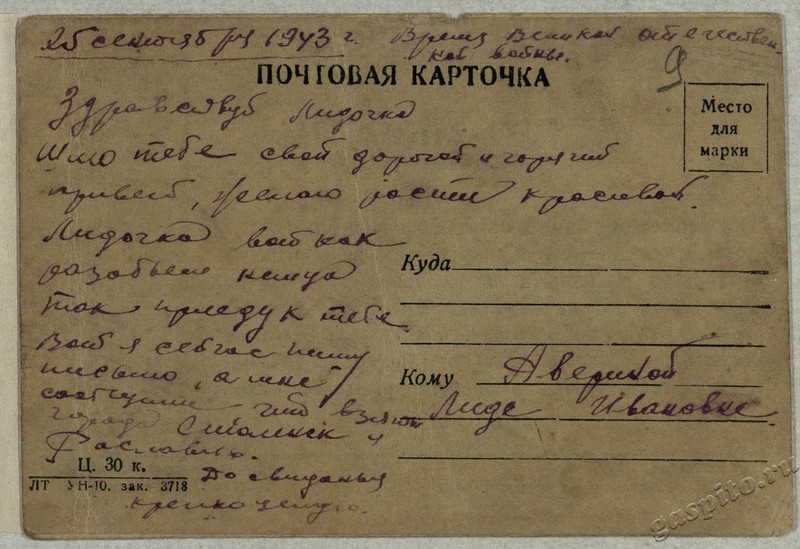 25 сентября 1943 г. Время Великой отечествен-
ной войны.
9
ПОЧТОВАЯ КАРТОЧКА
Место
для
марки
Здравствуй Лидочка
Шлю тебе свой дорогой и горячий
привет, желаю расти красивой.
Лидочка вот как
разобьем немца
так приеду к тебе.
Вот я сейчас пишу
письмо, а мне
сообщили что взяли
города Смоленск и
Рославль.
До свиданья
крепко целую.
Куда
Кому Авериной
Лиде Ивановне
Ц. 30 к.
ЛТ УН-10. зак. 3718
gaspito.ru